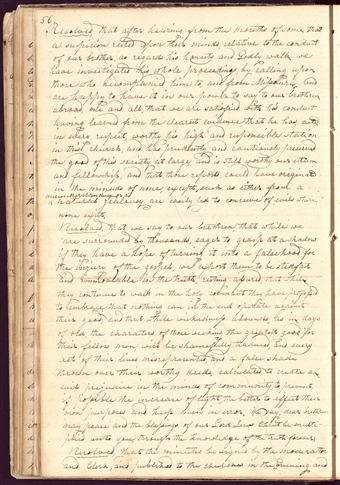 56
Resolved that after hearing from the mouths of some, that
a suspicion rested upon their minds, relative to the conduct
of our brother, as regards his honesty and Godly walk, we
have investigated his whole proceedings by calling upon
those who accompanied him to and from Missouri, and
are happy to have it in our power to say to our brethren
abroad, one and all, that we are satisfied with his conduct
having learned from the clearest evidence that he has acted
in every respect worthy his high and responsible station
in this church, and has prudently and cautiously preserved
the good of this society at large, and is still worthy our esteem
and fellowship, and that those reports could have originated
in the minds of none, except such as either from a
natural jealousy, are easily led to conceive of evils where
none exists.
Resolved, that we say to our brethren, that while we
are surrounded by thousands, eager to grasp at a shadow
if they have a hope of turning it into a falsehood for
the injury of the gospel, we exhort them to be stedfast
and immovable in the truth, resting assured, that while
they continue to walk in the holy covenant they have professed
to embrace, that nothing can in the end operate against
their good and that while wickedness abounds, as in days
of old, the characters of those seeking the greatest good for
their fellow men, will be shamefully and every
act of their lives misrepresented, and a false shade
thrown over their worthy deeds, calculated to create an
evil prejudice in the minds of community, to prevent
if possible the increase of light, the better to effect their
own purposes and keep men in error, &c. May, dear brethren,
may peace and the blessings of our Lord Jesus Christ be multi-
plied unto you, through the knowledge of the truth forever.
Resolved that the minutes be signed by the moderator
and Clerk, and published to the churches in the Evening and